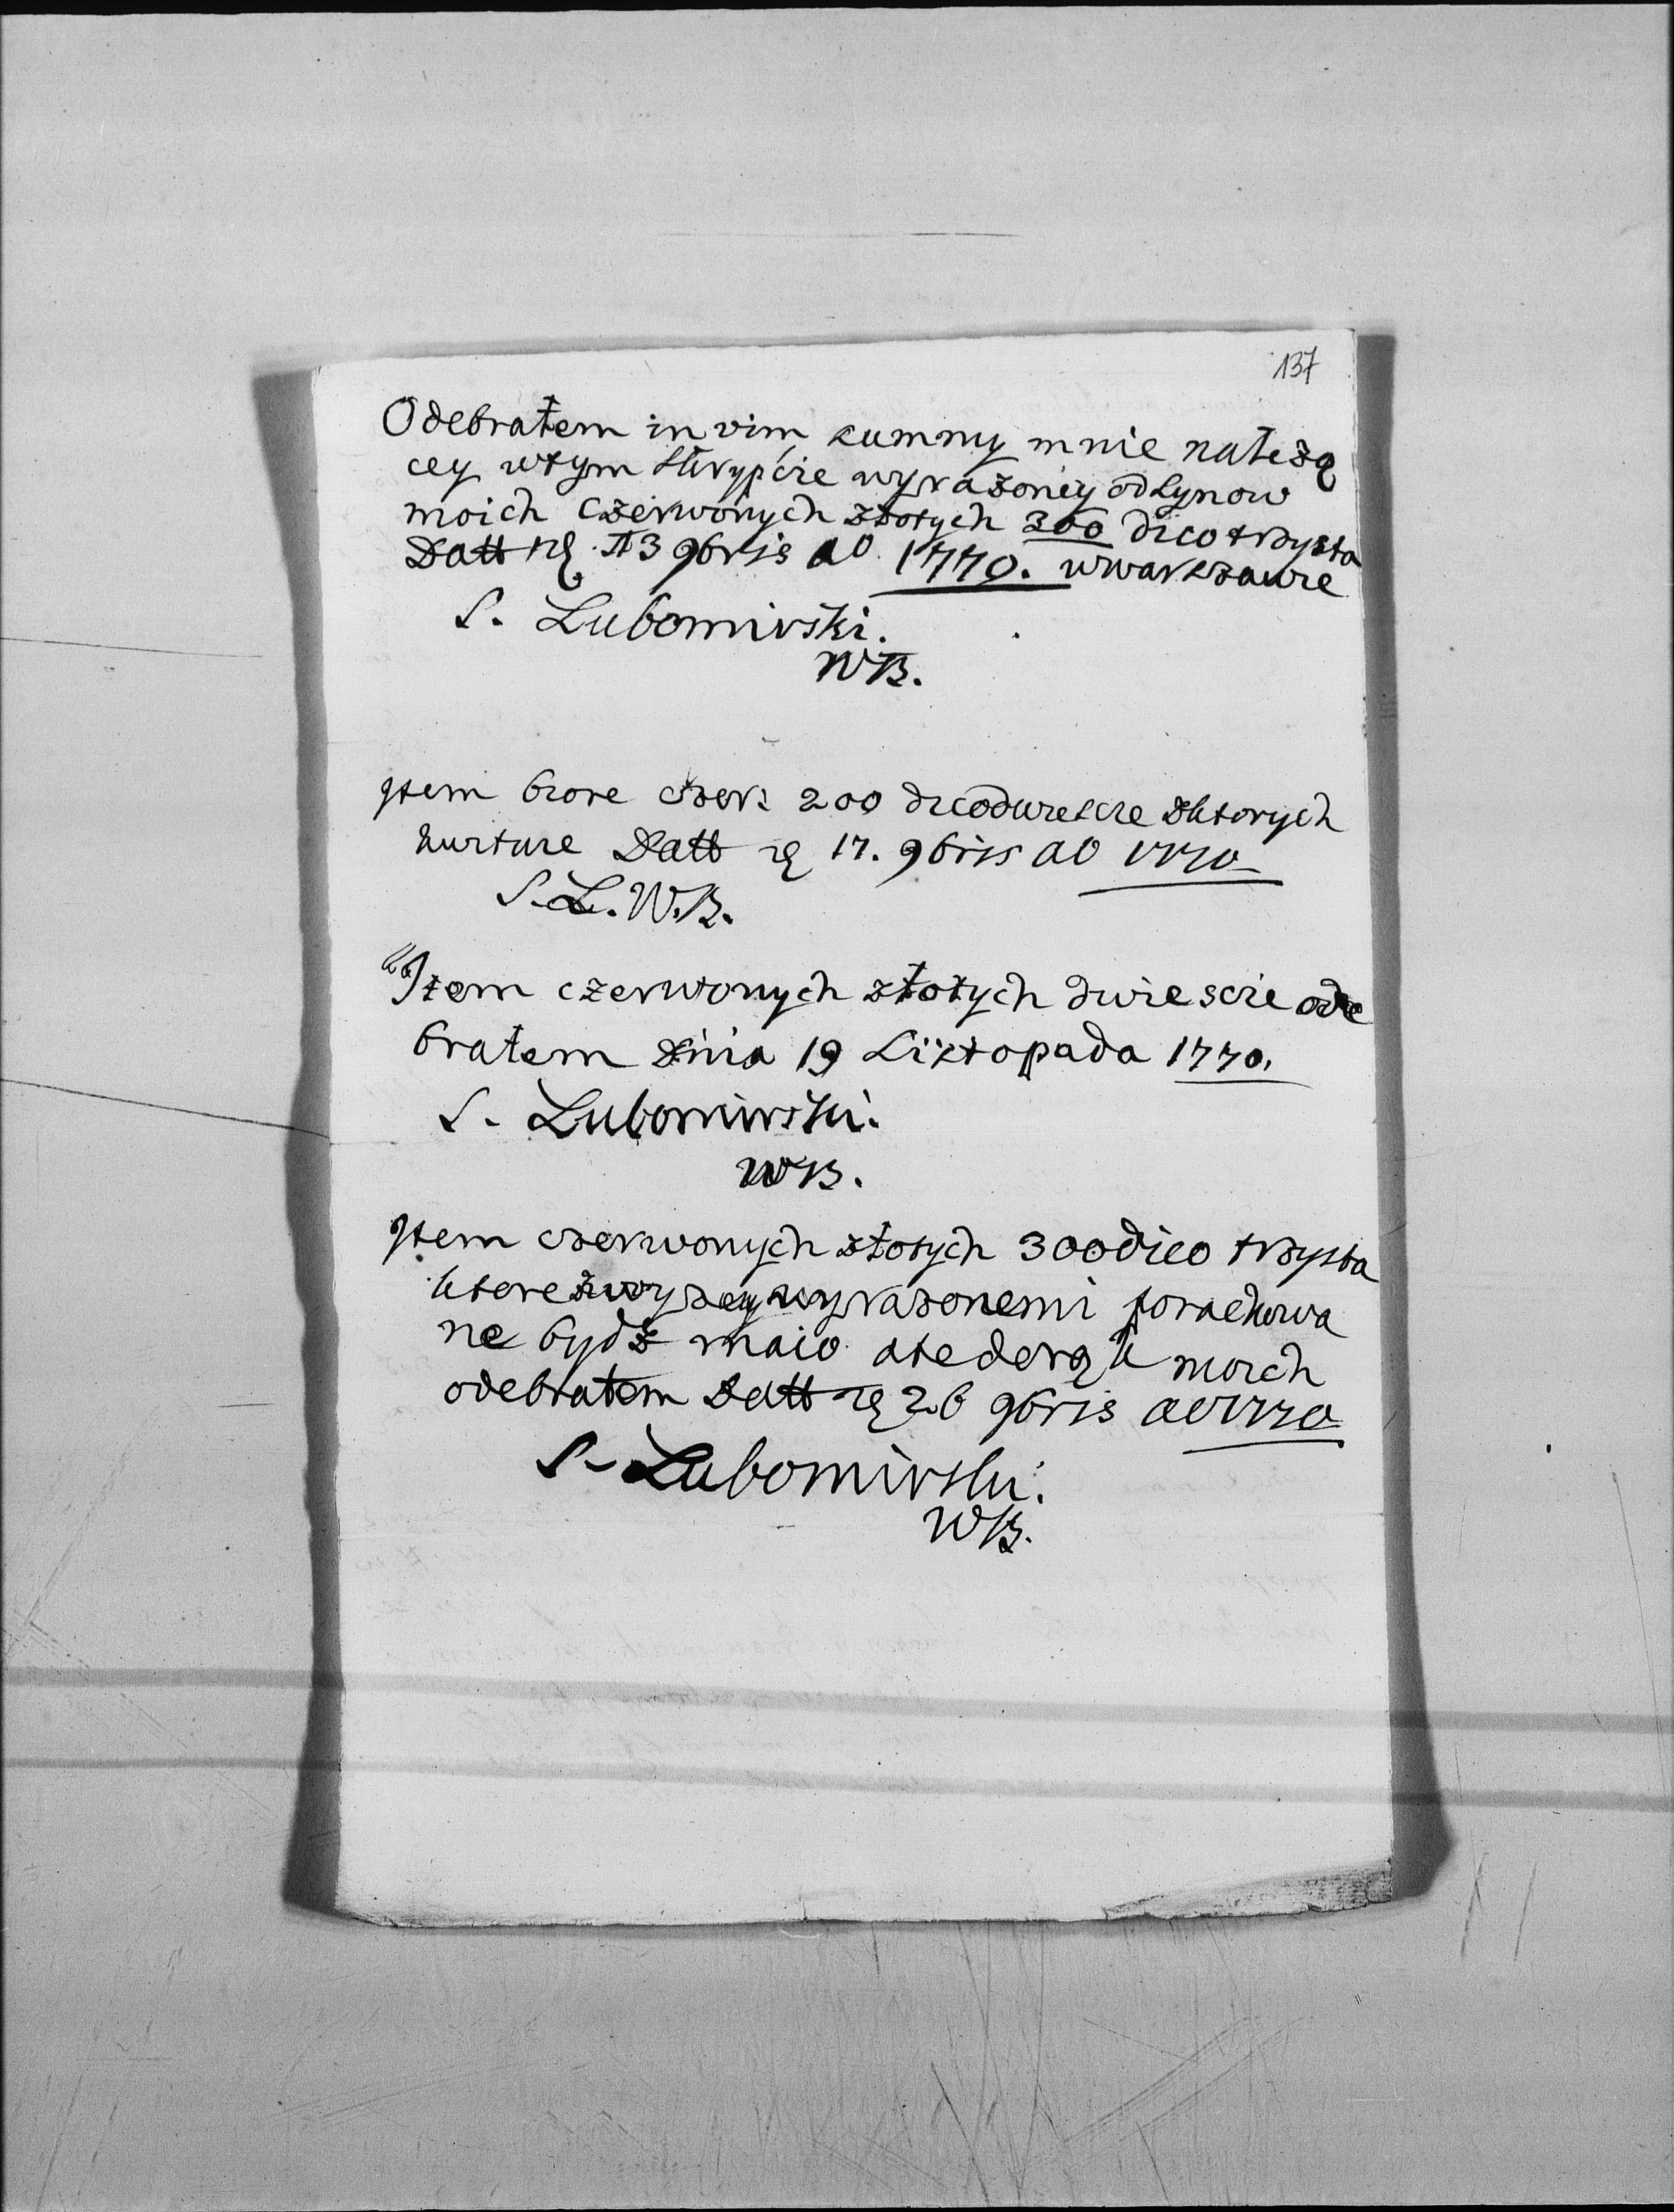 137
Odebrałem in vim summy mnie należą
cey wtym skrypcie wyrażoney od synow
moich czerwonych złotych 300 dico trzysta
Datt 13 9bris a0 1770. wwarszawie
S. Lubomirski.
WB.
Jtem biore czer: 200 dico dwiescie zktorych
kwituie Datt 17. 9bris a0 1770
S. L. W. B.
Jtem czerwonych złotych dwiescie ode
brałem Dnia 19 Listopada 1770.
S. Lubomirski.
WB.
Jtem czerwonych złotych 300 dico trzysta
ktore zwyzey wyrazonemi porachowa
ne bydź maio moich
odebrałem Datt 26 9bris a0 1770
S. Lubomirski.
WB.